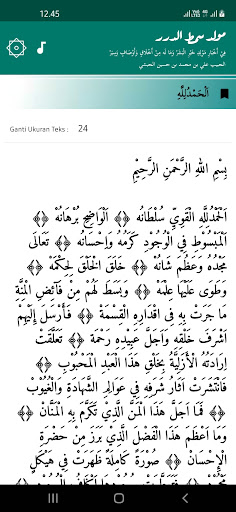 12.45
مولد سمط الدرر
فِيْ أَخْبَارِ مَوْلِدِ خَيْرِ الْبَشَرْ وَمَا لَهُ مِنْ أَخْلَاقٍ وَأَوْصَافٍ وَسِيَرْ
الحبيب علي بن محمد بن حسين الحبشي
اَلْحَمْدُلِلّٰهِ
Ganti Ukuran Teks : 24
بِسْمِ اللهِ الرَّحْمَنِ الرَّحِيْمِ
اَلْحَمْدُلِلهِ الْقَوِيِّ سُلْطَانُهُ ﴿﴾ اَلْوَاضِحِ بُرْهَانُهُ ﴿﴾
اَلْمَبْسُوْطِ فِي الْوُجُوْدِ كَرَمُهُ وَاِحْسَانُهُ ﴿﴾ تَعَالَى
مَجْدُهُ وَعَظُمَ شَانُهُ ﴿﴾ خَلَقَ الْخَلْقَ لِحِكْمَهْ ﴿﴾
وَطَوَى عَلَيْهَا عِلْمَهْ ﴿﴾ وَبَسَطَ لَهُمْ مِنْ فَآئِضِ الْمِنَّةِ
مَا جَرَتْ بِهِ فِي اَقْدَارِهِ الْقِسْمَةْ ﴿﴾ فَأَرْسَلَ اِلَيْهِمْ
اَشْرَفَ خَلْقِهِ وَاَجَلَّ عَبِيْدِهِ رَحْمَةْ ﴿﴾ تَعَلَّقَتْ
اِرَادَتُهُ الْأَزَلِيَّةُ بِخَلْقِ هٰذَا الْعَبْدِ الْمَحْبُوْبِ ﴿﴾
فَانْتَشَرَتْ اٰثَارُ شَرَفِهِ فِي عَوَالِمِ الشَّهَادَةِ وَالْغُيُوْبِ
﴿﴾ فَمَا اَجَلَّ هٰذَا الْمَنَّ الَّذِيْ تَكَرَّمَ بِهِ الْمَنَّانْ ﴿﴾
وَمَا اَعْظَمَ هٰذَا الْفَضْلَ الَّذِيْ بَرَزَ مِنْ حَضْرَةِ
الْإِحْسَانْ ﴿﴾ صُوْرَةً كَامِلَةً ظَهَرَتْ فِي هَيْكَلٍ